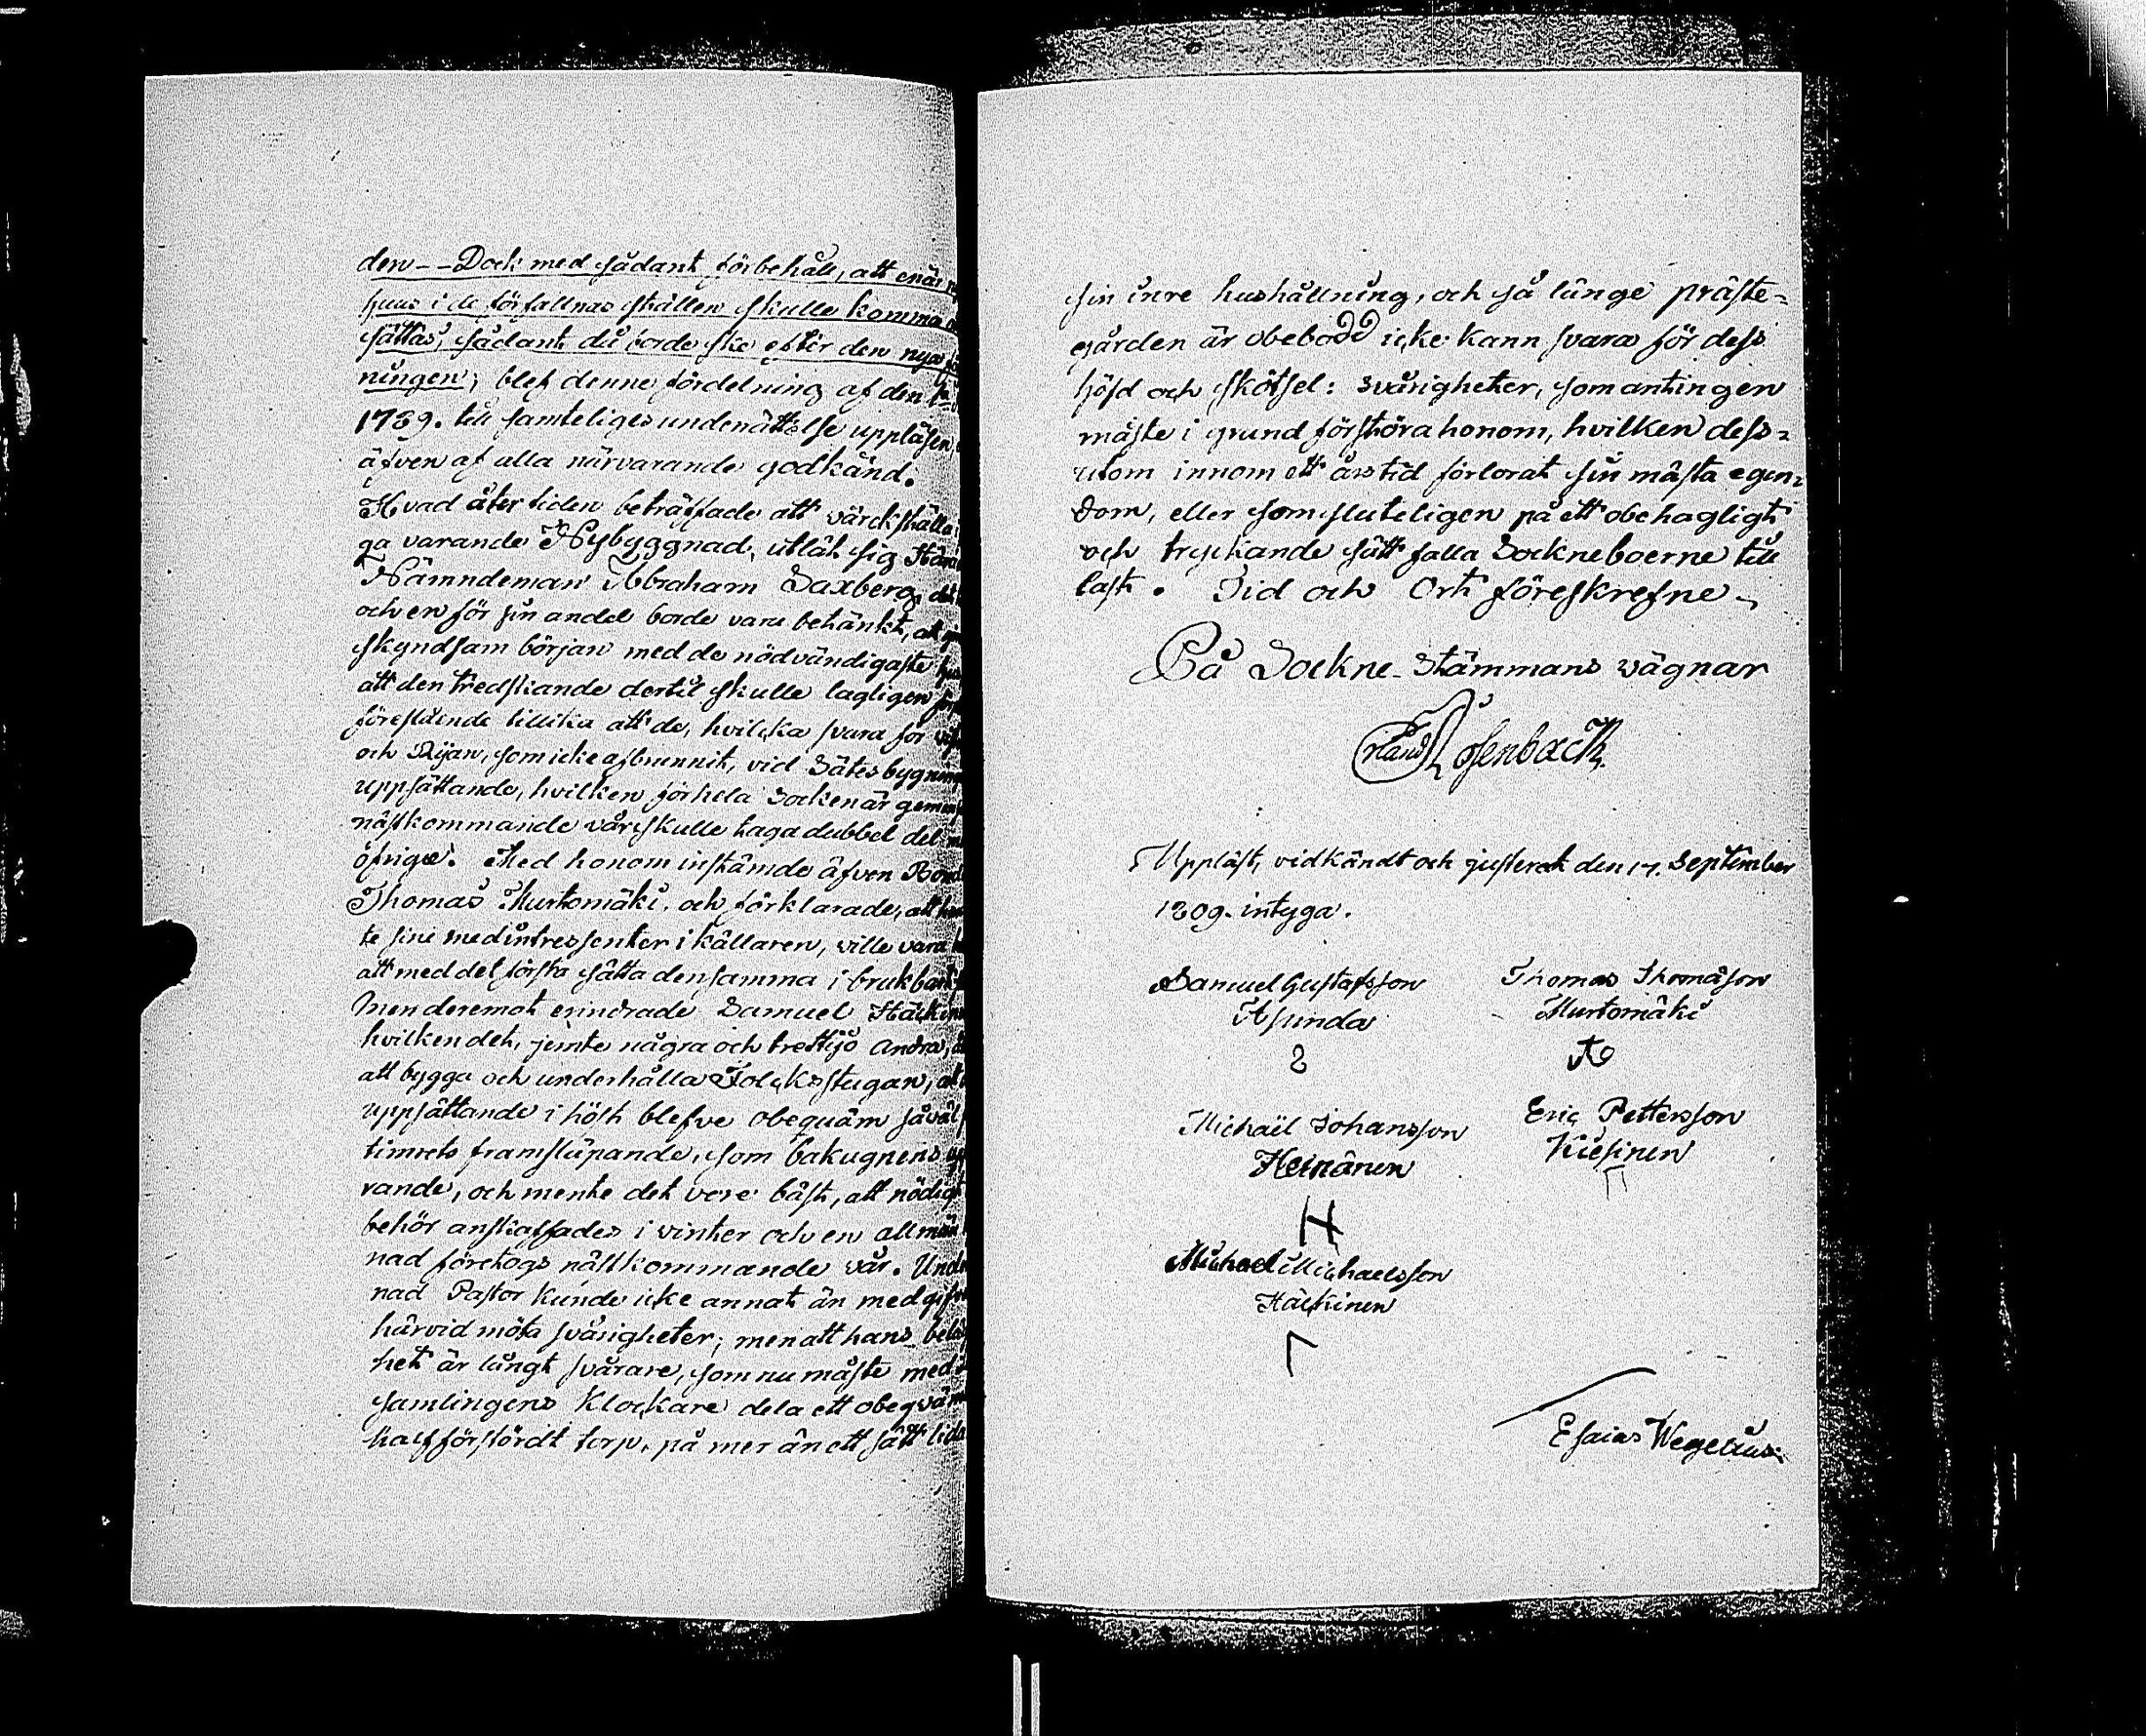 den -- Dock med sådant förbehåll, att enär
huus i de förfallnas ställen skulle komma
sättas, sådant då borde ske efter den nya
ningen; blef denne fördelning af den
1789. till samteliges underrättelse uppläsen
äfven af alla närvarande godkänd.
Hvad åter tiden beträffade att värckställa
ga varande Nybyggnad, utlät sig
Nämndeman Abraham Saxberg,
och en för sin andel borde vara betänkt, att
skyndsam början med de nödvändigaste
att den tredskande dertil skulle lagligen
förestående tillika att de, hvilcka svara för
och Rijan, som icke afbrunnit, vid Sätesbygnin
uppsättande, hvilken för hela Socken är gemen
nästkommande vår skulle taga dubbel del
öfrige. Med honom instämde äfven
Thomas Murtomäki, och förklarade, att
te sine medintressenter i källaren, ville vara
att med det första sätta densamma i brukbart
Men deremot erindrade Samuel
hvilken det, jemte några och trettijo andra,
att bygga och underhålla Folckstugan,
uppsättande i höst blefve obequäm såväl
timrets framsläpande, som bakugnens
rande, och mente det vore bäst, att nödigt
behör anskaffades i vinter och en allmän
nad företogs nästkommande vår.
nad Pastor kunde icke annat än medgifva
härvid möta svårigheter; men att hans
het är långt svårare, som nu måste med
samlingens Klockare dela ett obeqväm
half förstördt torp, på mer än ett sätt lida
sin inre hushållning, och så länge präste-
gården är obebodd icke kann svara för dess
höfd och skötsel: svårigheter, som antingen
måste i grund förstöra honom, hvilken dess-
utom innom ett års tid förlorat sin mästa egen-
dom, eller som sluteligen på ett obehagligt
och tryckande sätt falla Sockneboerne till
last. Tid och Ort föreskrefne
På Sockne-Stämmans vägnar
Erland Rosenback
Uppläst, vidkändt och justerat den 17. September
1809. intyga.
Samuel Gustafsson Thomas Thomasson
Asunda Murtomäki
Michaël Johansson Eric Pettersson
Heinänen Kiesinen
Michael Michaelsson
Häckinen
Esaias Wegelius